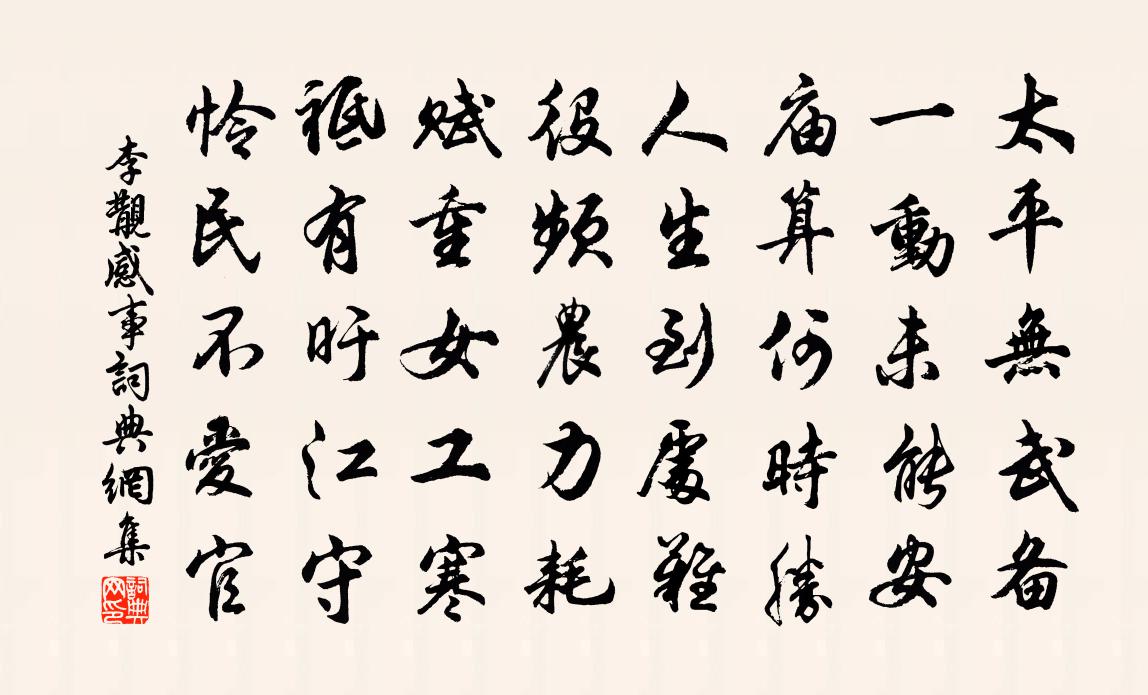 太平無武备
一動未能安
庙算何時勝
人生到處難
役頻農力耗
赋重女工寒
祗有旴江守
怜民不愛官
李覯感事詞典網集
詞典网印